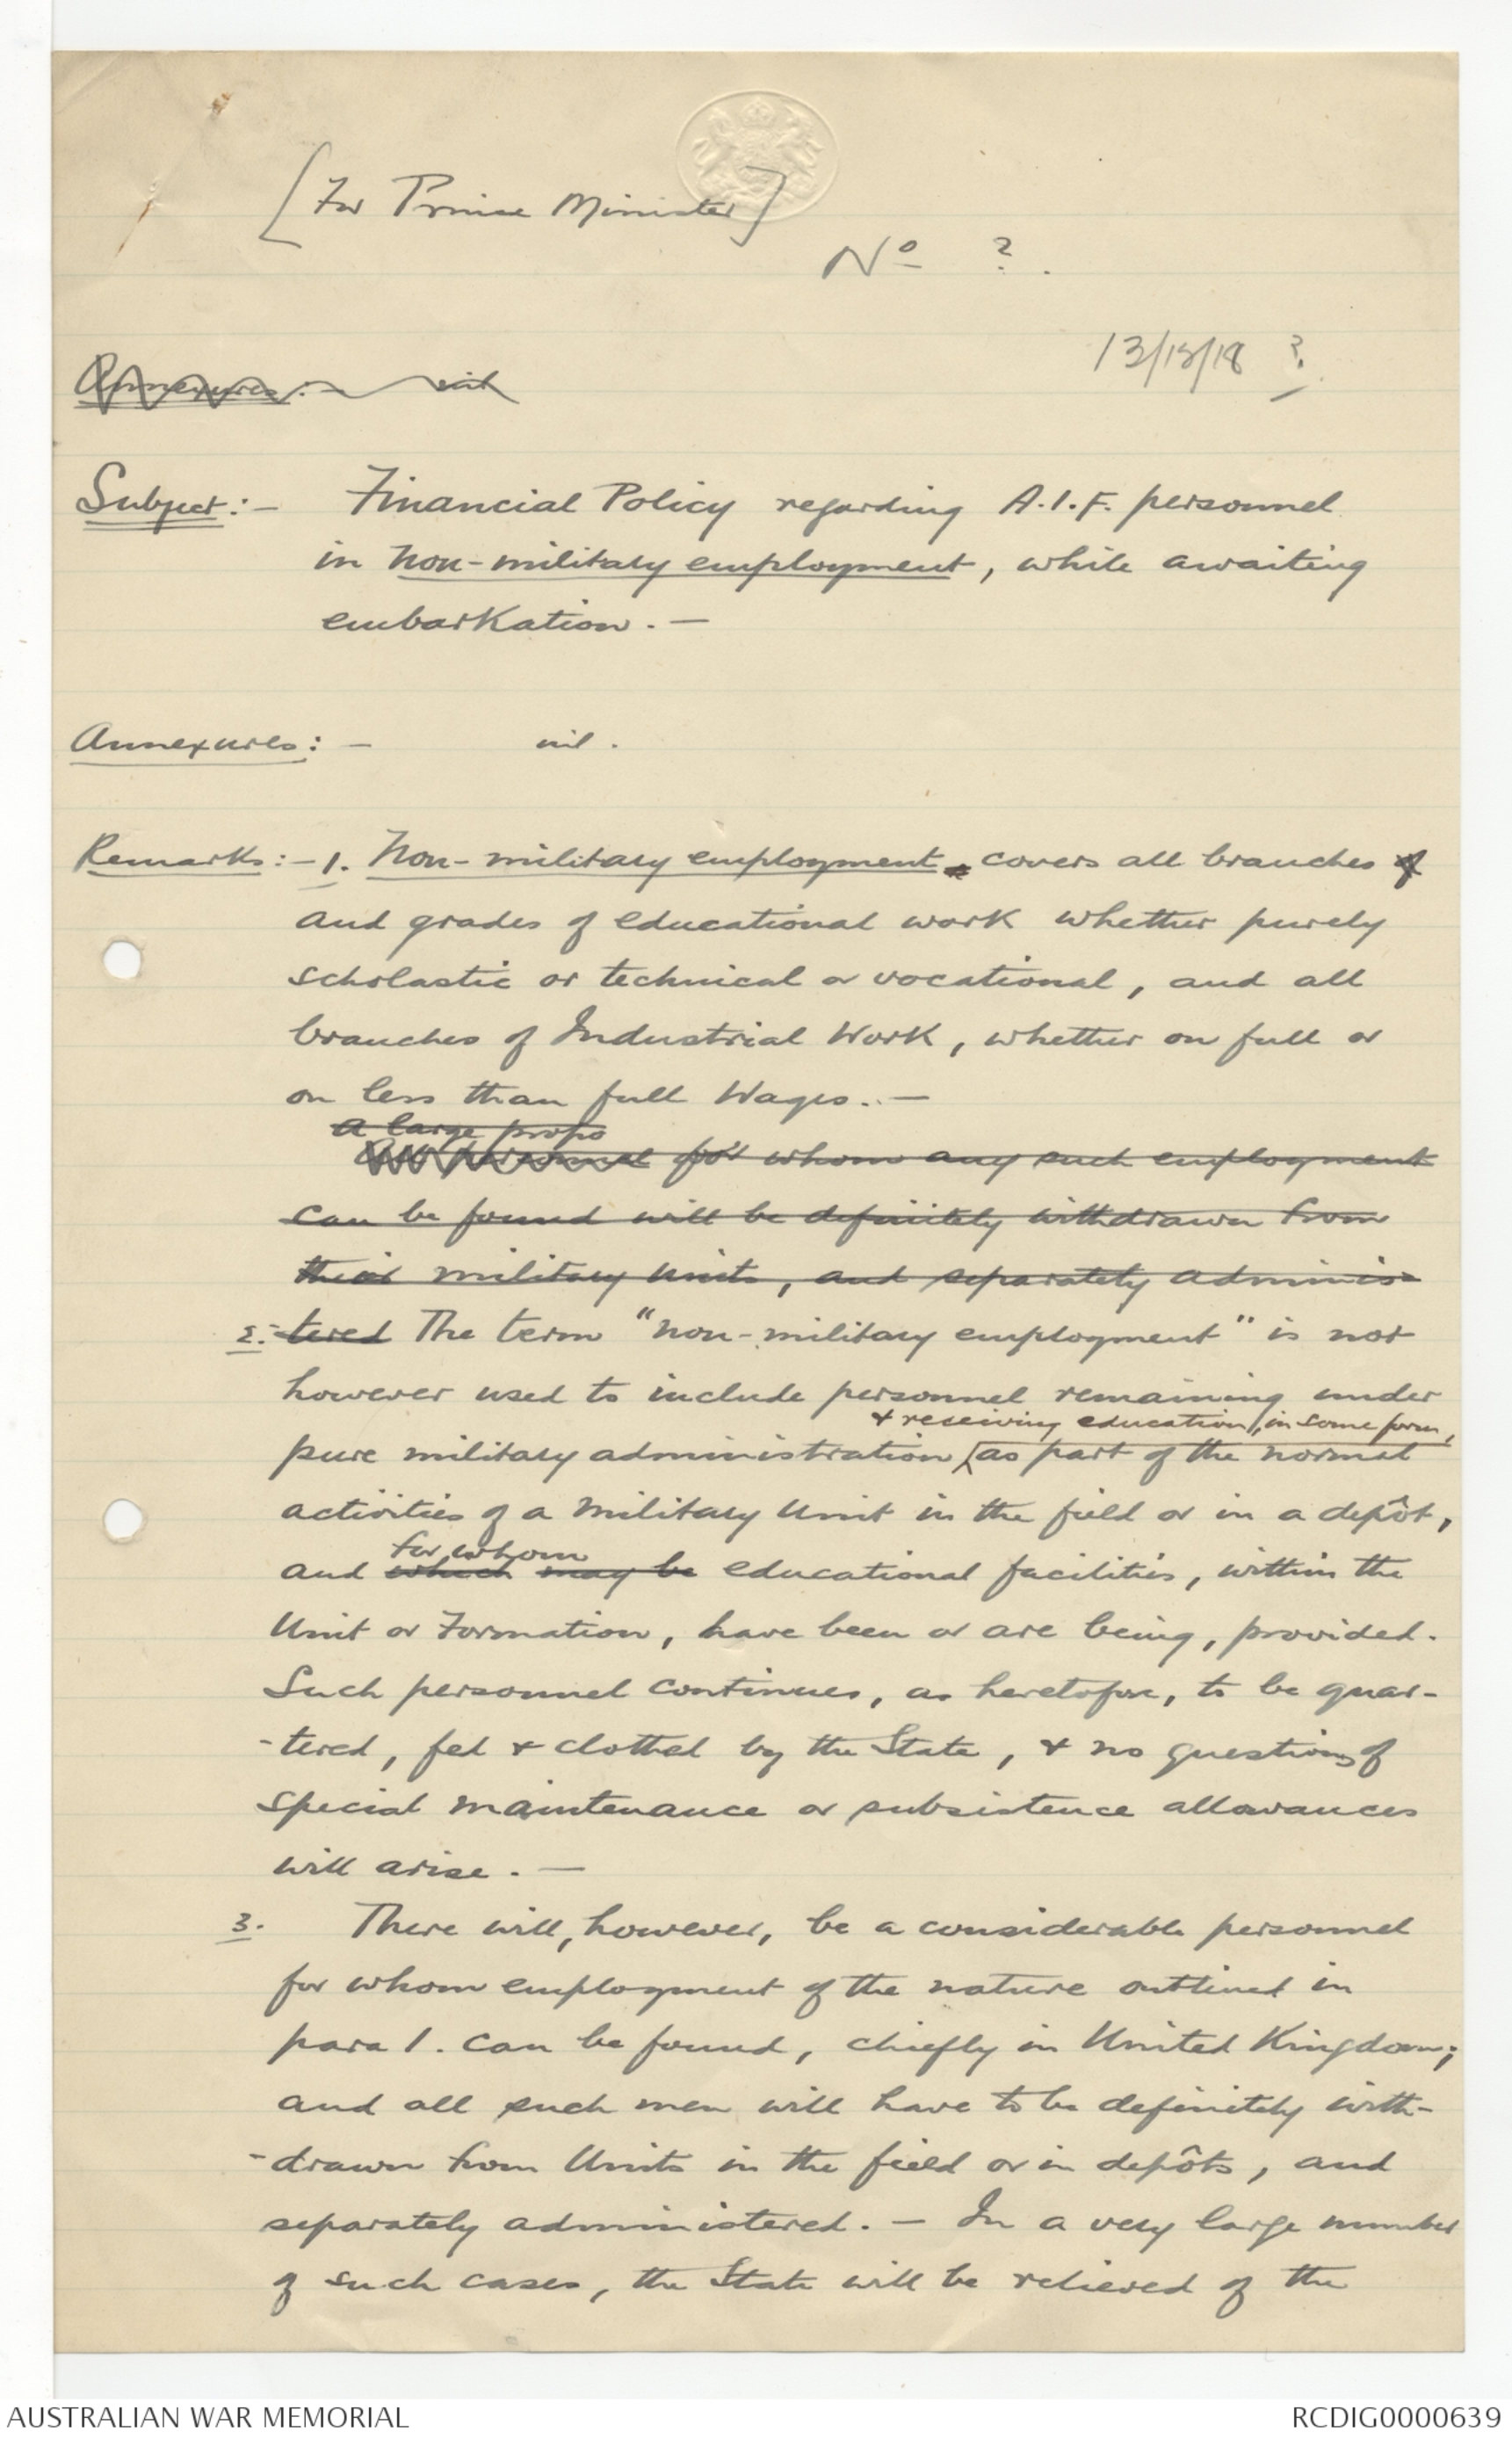 [For Prime Minister]
No ?.
13/12/18 ?
Annexures:- nil
Subject:- Financial Policy regarding A.I.F. personnel
in non-military employment, while awaiting
embarkation. -
Annexures:- nil.
Remarks:- 1. Non-military employment covers all branches of
and grades of educational work whether purely
scholastic or technical or vocational, and all
branches of Industrial Work, whether on full or
on less than full Wages. -
A large propo
All personnel for whom any such employment
can be found will be definitely withdrawn from
their military units, and separately adminis-
2. -tered The term "non-military employment" is not
however used to include personnel remaining under
& receiving education, in some form,
pure military administration as part of the normal
activities of a military Unit in the field or in a depôt,
for whom
and which may be educational facilities, within the
Unit or Formation, have been or are being, provided.
Such personnel continues, as heretofore, to be quar-
-tered, fed & clothed by the State, & no questions of
special maintenance or subsistence allowances
will arise. -
3. There will, however, be a considerable personnel
for whom employment of the nature outlined in
para 1. can be found, chiefly in United Kingdom;
and all such men will have to be definitely with-
-drawn from Units in the field or in depôts, and
separately administered. - In a very large number
of such cases, the State will be relieved of the
AUSTRALIAN WAR MEMORIAL
RCDIG0000639